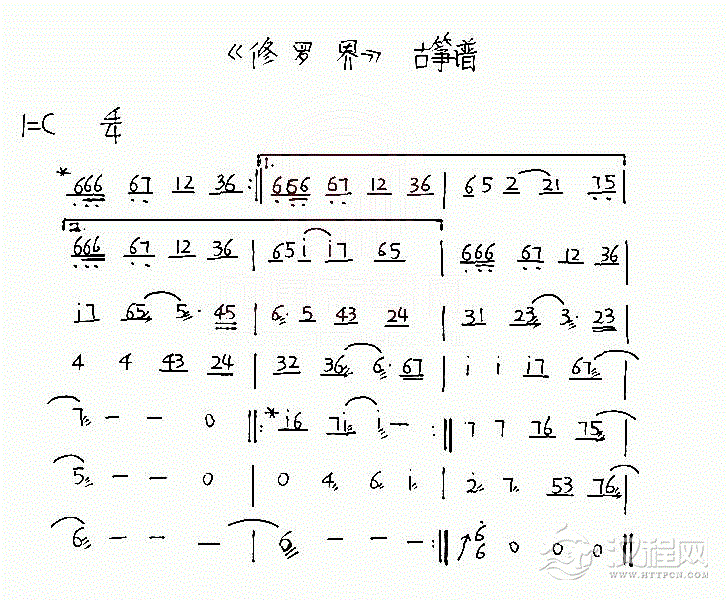 《修罗界》 古筝谱
1=C 4/4
*666 67 12 36 :‖ 1. 666 67 12 36 | 65 2 21 75 |
2. 666 67 12 36 | 65i i7 65 | 666 67 12 36 |
i7 65 5· 45 | 6· 5 43 24 | 31 23 3· 23 |
4 4 43 24 | 32 36 6· 67 | i i i7 67 |
7 — — 0 ‖: *i6 7i i — :‖ 7 7 76 75 |
5 — — 0 | 0 4 6 i | 2 7 53 76 |
6 — — — | 6 — — — :‖ 6 6 0 0 0 ‖
汉程网
WWW.HTTPCN.COM